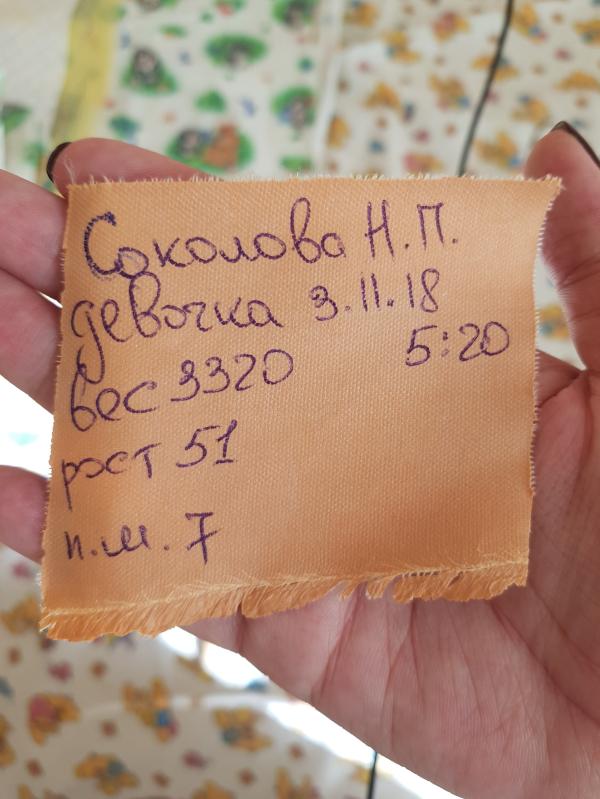 Соколова Н.П.
девочка 3.11.18
вес 3320 5:20
рост 51
п.м. 7